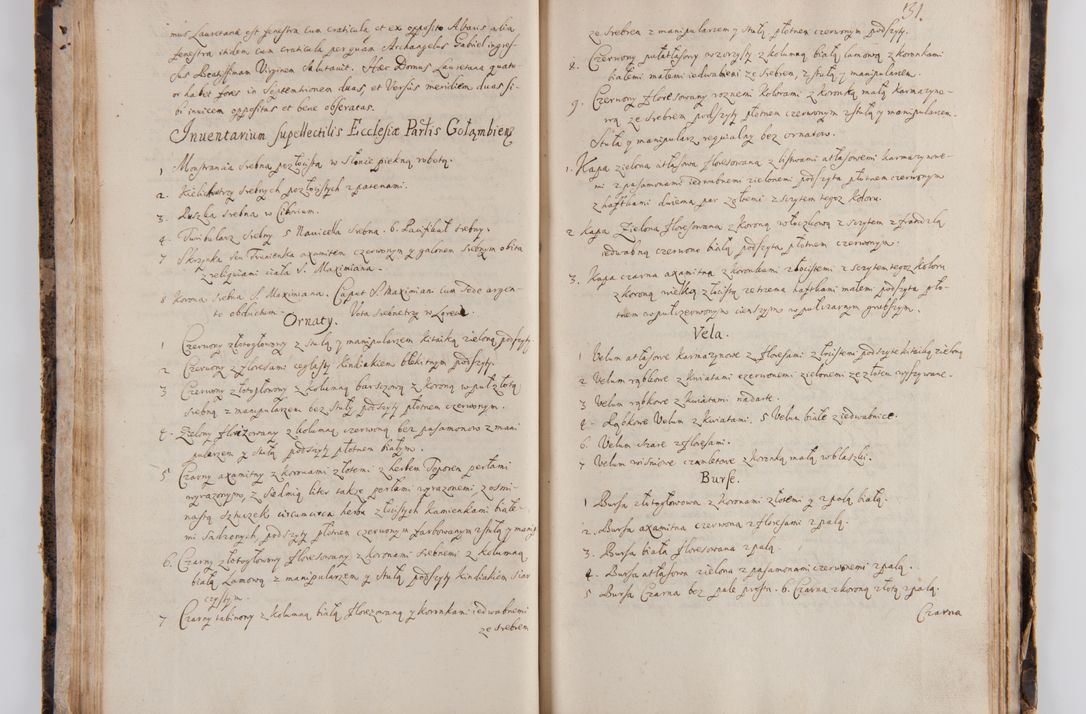 mus Lauretana est fenestra cum craticula et ex opposito Altaris alia
fenestra itidem cum craticula per quam Archangelus Gabriel ingres-
sus Beatissimam Virginem Salutavit. Hæc Domus Lauretana quatu-
or habet fores in Septentrionem duas, et Versus meridiem duas si-
bi invicem oppositas et bene obseratas.
Inventarium supellectilis Ecclesiæ Partis Gołąmbien
1 Monstrancia srebna pozłocista w słonce piękną robotą.
2. Kielichy trzy srebnych pozłocistych z patenami.
3. Puszka srebna w Ciborium.
4. Turibularz srebny 5 Navicella srebna. 6. Pacifikał srebny.
7 Skrzynka axamitem czerwonym y galonem srebnym obita
z reliquiami ciała S. Maximiana.
8 Korona srebna S. Maximiana. Caput S. Maximiani cum sede argen-
te obductum. Vota srebne trzy w Lorecie.
Ornaty.
1 Czerwony złotogłowny z stułą y manipularzem kitaiką zieloną podszyty.
2 Czerwony z floresami ceglasty kindiakiem błękitnym podszyty.
3 Czerwony złotogłowny z kolumną barszczową z koroną w puł złotą
srebną z manipularzem bez stuły podszyty płotnem czerwonym.
4. Zielony florezowany z kolumną czerwoną bez pasamonow z mani
pularzem y stułą podszyty płotnem białym.
5 Czarny axamitny z koronami złotemi z herbem Toporem perłami
wyrazonym, z siedmią liter takze perłami wyrazonemi z osmi-
nastą sztuczek circumcirca herbu złocistych kamienkami białe-
mi sadzonych, podszyty płotnem czerwonym farbowanym z stułą y manip
6. Czarny złotogłowny floresowany z koronami srebnemi z kolumną
białą Lamową z manipularzem y stułą podszyty kindiakiem siar
czystym.
7 Czarny tabinowy z kolumną białą florezowaną y koronkami iedwabnemi
ze srebrem
131.
ze srebrem z manipularzem y stułą płotnem czerwonym podszyty.
8. Czerwony pułatłasowy wzorzysty z kolumną białą lamową z koronkami
białemi małemi iedwabnemi ze srebrem, z stułą y manipularzem.
9. Czerwony floresowany roznemi kolorami z koronką małą karmazyno-
wą ze srebrem podszyty płotnem czerwonym z stułą y manipularzem.
Stuła y manipularz requialny bez ornatow.
1. Kapa zielona atłasowa floresowana z listwami atłasowemi karmazynowe-
mi z pasamonami iedwabnemi zielonemi podszyta płotnem czerwonym
z haftkami dwiema par złotemi z szczytem tegoz koloru.
2 Kapa Zielona floresowana z koroną włoczkową z szczytem z frandzlą
iedwabną czerwono białą podszyta płotnem czerwonym.
3. Kapa czarna axamitna z koronkami złocistemi z szczytem tegoz koloru
z koroną wielką złocistą ze trzema haftkami małemi podszyta pło-
tnem w puł czerwonym cienszym w puł czarnym grubszym.
Vela.
1 Velum atłasowe karmazynowe z floresami złocistemi podszyte kitaiką zieloną
2 Velum rąbkowe z kwiatami czerwonemi zielonemi ze złotem wyszywane.
3 Velum rąbkowe z kwiatami nadarte.
4. Rąbkowe Velum z kwiatami. 5 Velum białe z iedwabnice.
6. Velum szare z floresami.
7 Velum wisniowe czamletowe z koronką małą w blaszki.
Bursæ.
1 Bursa złotogłowowa z koronami złotemi y z palą białą.
2. Bursa axamitna czerwona z floresami z palą.
3. Bursa biała floresowana z palą.
4. Bursa atłasowa zielona z pasamonami czerwonemi z palą.
5 Bursa Czarna bez pale prosta. 6. Czarna z koroną złotą z palą.
Czarna